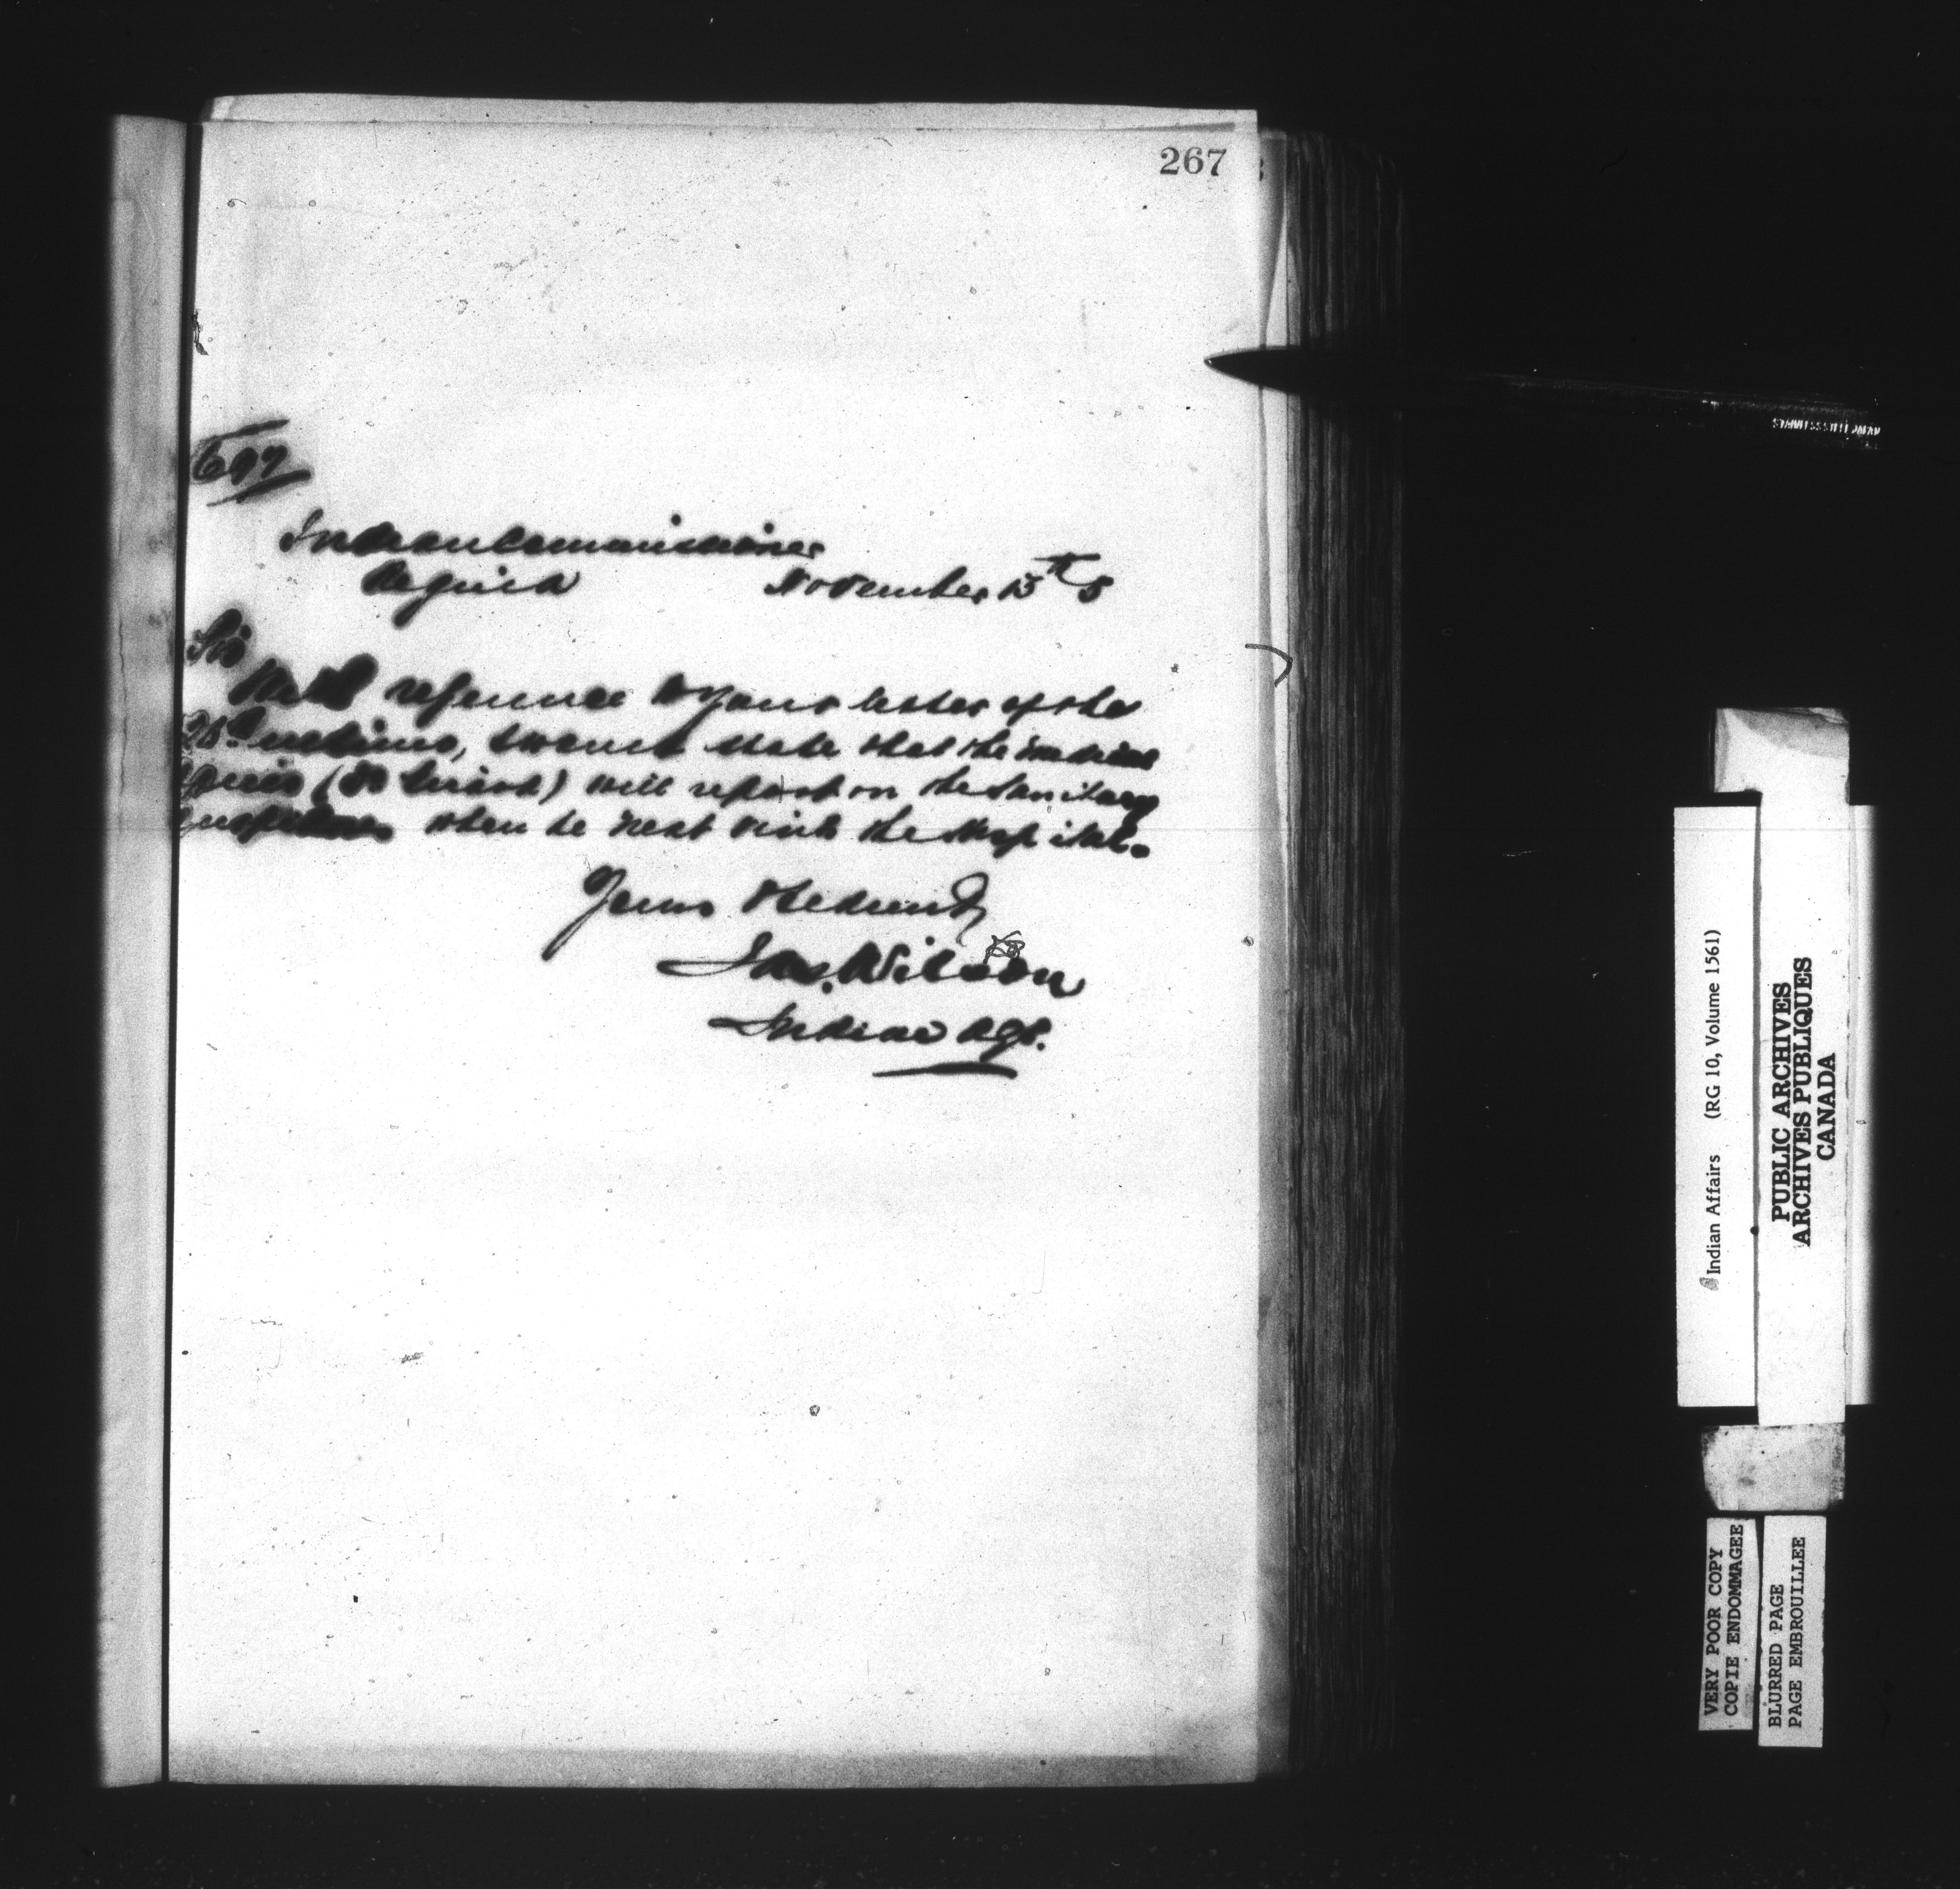 267
697
Indian Commissioner
Regina November 15th 5
Sir
With reference to your letter of the
ultimo, I would state that the medical
(Dr Girard) will report on the Sanitary
when he next visits the Hospital.
Yours Obediently
Jas. Wilson
Indian Agt.
STAINLESS STEEL JAPAN
Indian Affairs (RG 10, Volume 1561)
PUBLIC ARCHIVES
ARCHIVES PUBLIQUES
CANADA
VERY POOR COPY
COPIE ENDOMMAGEE
BLURRED PAGE
PAGE EMBROUILLEE